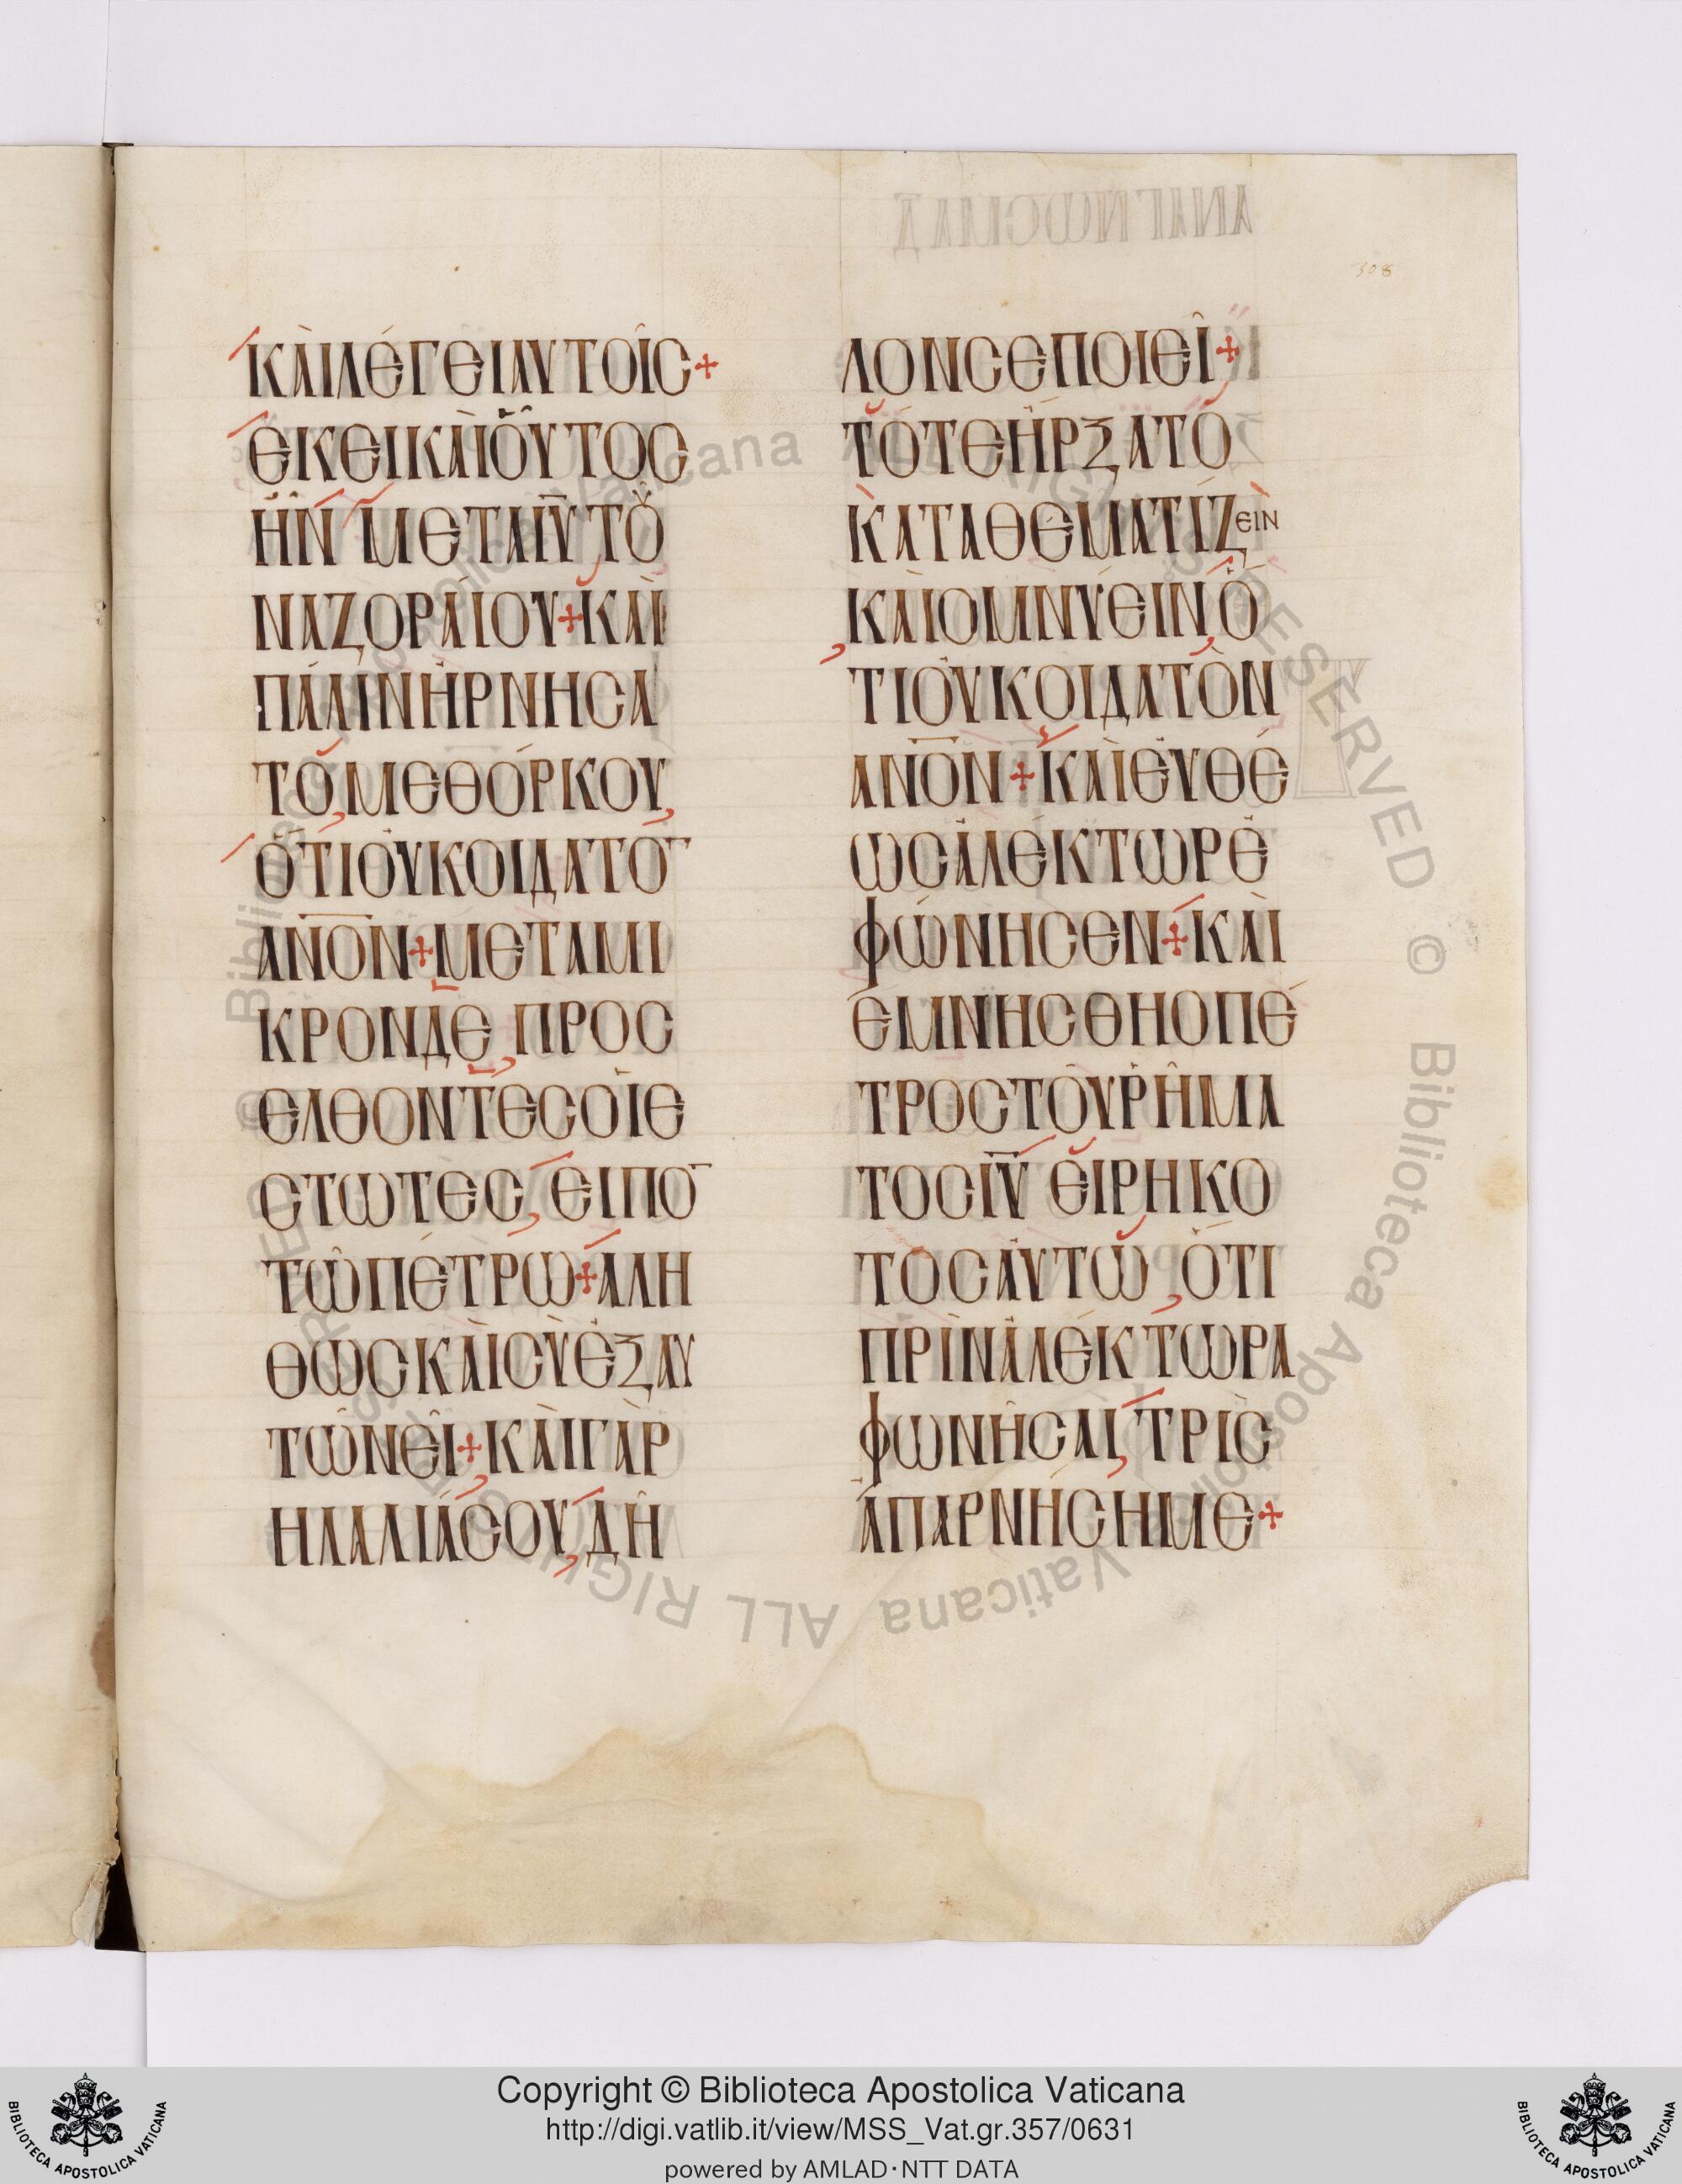 308
ΚΑΙΛΕΓΕΙΑΥΤΟΙΣ+
ΕΚΕΙΚΑΙΟΥΤΟΣ
ΗΝ ΜΕΤΑΙΥ̅ ΤΟΥ
ΝΑΖΟΡΑΙΟΥ+ΚΑΙ
ΠΑΛΙΝΗΡΝΗΣΑ
ΤΟ,ΜΕΘΟΡΚΟΥ,
ΟΤΙΟΥΚΟΙΔΑΤΟ̅
ΑΝ̅Ο̅Ν+ΜΕΤΑΜΙ
ΚΡΟΝΔΕ,ΠΡΟΣ
ΕΛΘΟΝΤΕΣΟΙΕ
ΣΤΩΤΕΣ,ΕΙΠΟ̅
ΤΩΠΕΤΡΩ+ΑΛΗ
ΘΩΣΚΑΙΣΥΕΞΑΥ
ΤΩΝΕΙ+ΚΑΙΓΑΡ
ΗΛΑΛΙΑΣΟΥ,ΔΗ
ΛΟΝΣΕΠΟΙΕΙ+
ΤΟΤΕΗΡΞΑΤΟ
ΚΑΤΑΘΕΜΑΤΙΖΕΙΝ
ΚΑΙΟΜΝΥΕΙΝ,Ο
ΤΙΟΥΚΟΙΔΑΤΟΝ
ΑΝ̅Ο̅Ν+ΚΑΙΕΥΘΕ
ΩΣΑΛΕΚΤΩΡΕ
ΦΩΝΗΣΕΝ+ΚΑΙ
ΕΜΝΗΣΘΗΟΠΕ
ΤΡΟΣΤΟΥΡΗΜΑ
ΤΟΣΙΥ̅ ΕΙΡΗΚΟ
ΤΟΣΑΥΤΩ,ΟΤΙ
ΠΡΙΝΑΛΕΚΤΩΡΑ
ΦΩΝΗΣΑΙ,ΤΡΙΣ
ΑΠΑΡΝΗΣΗΜΕ+
© Biblioteca Apostolica Vaticana ALL RIGHTS RESERVED © Biblioteca Apostolica Vaticana ALL RIGHTS RESERVED
BIBLIOTECA APOSTOLICA VATICANA
Copyright © Biblioteca Apostolica Vaticana
http://digi.vatlib.it/view/MSS_Vat.gr.357/0631
powered by AMLAD·NTT DATA
BIBLIOTECA APOSTOLICA VATICANA